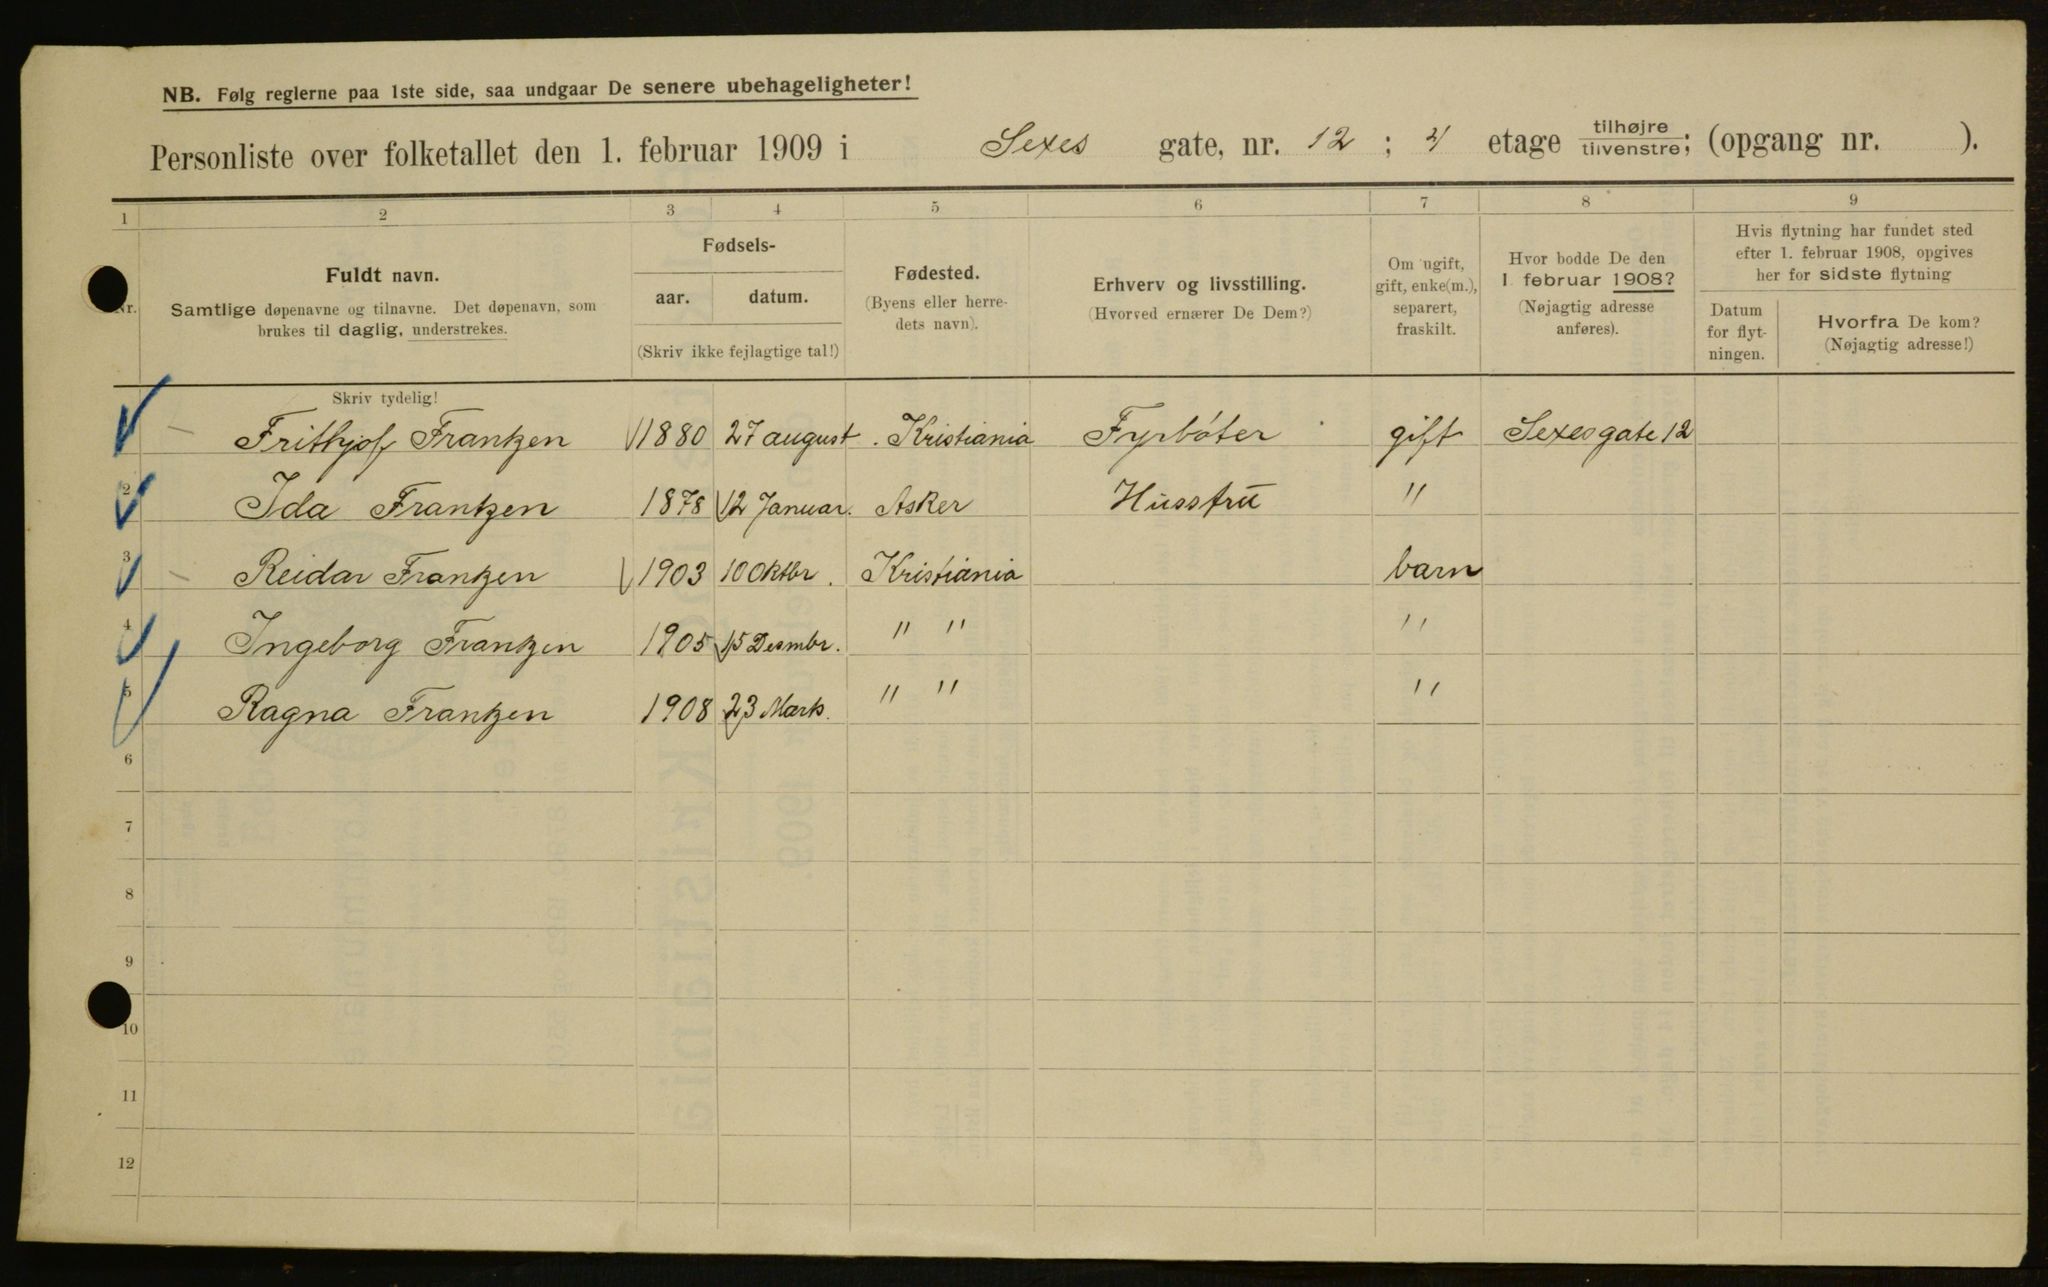 NB. Følg reglerne paa 1ste side, saa undgaar De senere ubehageligheter!
Personliste over folketallet den 1. februar 1909 i Sexes gate, nr. 12 ; 4 etage tilhøjre / tilvenstre; (opgang nr. ).
1 2 3 4 5 6 7 8 9
Nr.
Fuldt navn.
Samtlige døpenavne og tilnavne. Det døpenavn, som
brukes til daglig, understrekes.
Fødsels-
aar. datum.
(Skriv ikke fejlagtige tal!)
Fødested.
(Byens eller herre-
dets navn).
Erhverv og livsstilling.
(Hvorved ernærer De Dem?)
Om ugift,
gift, enke(m.),
separert,
fraskilt.
Hvor bodde De den
1. februar 1908?
(Nøjagtig adresse
anføres).
Hvis flytning har fundet sted
efter 1. februar 1908, opgives
her for sidste flytning
Datum
for flyt-
ningen.
Hvorfra De kom?
(Nøjagtig adresse!)
Skriv tydelig!
Frithjof Frantzen 1880 27 august. Kristiania Fyrbøter gift Sexesgate 12
2 Ida Frantzen 1878 12 Januar. Asker Hussfru "
3 Reidar Frantzen 1903 10 Oktbr. Kristiania barn
4 Ingeborg Frantzen 1905 15 Desmbr. " " "
5 Ragna Frantzen 1908 23 Marts. " " "
6
7
8
9
10
11
12